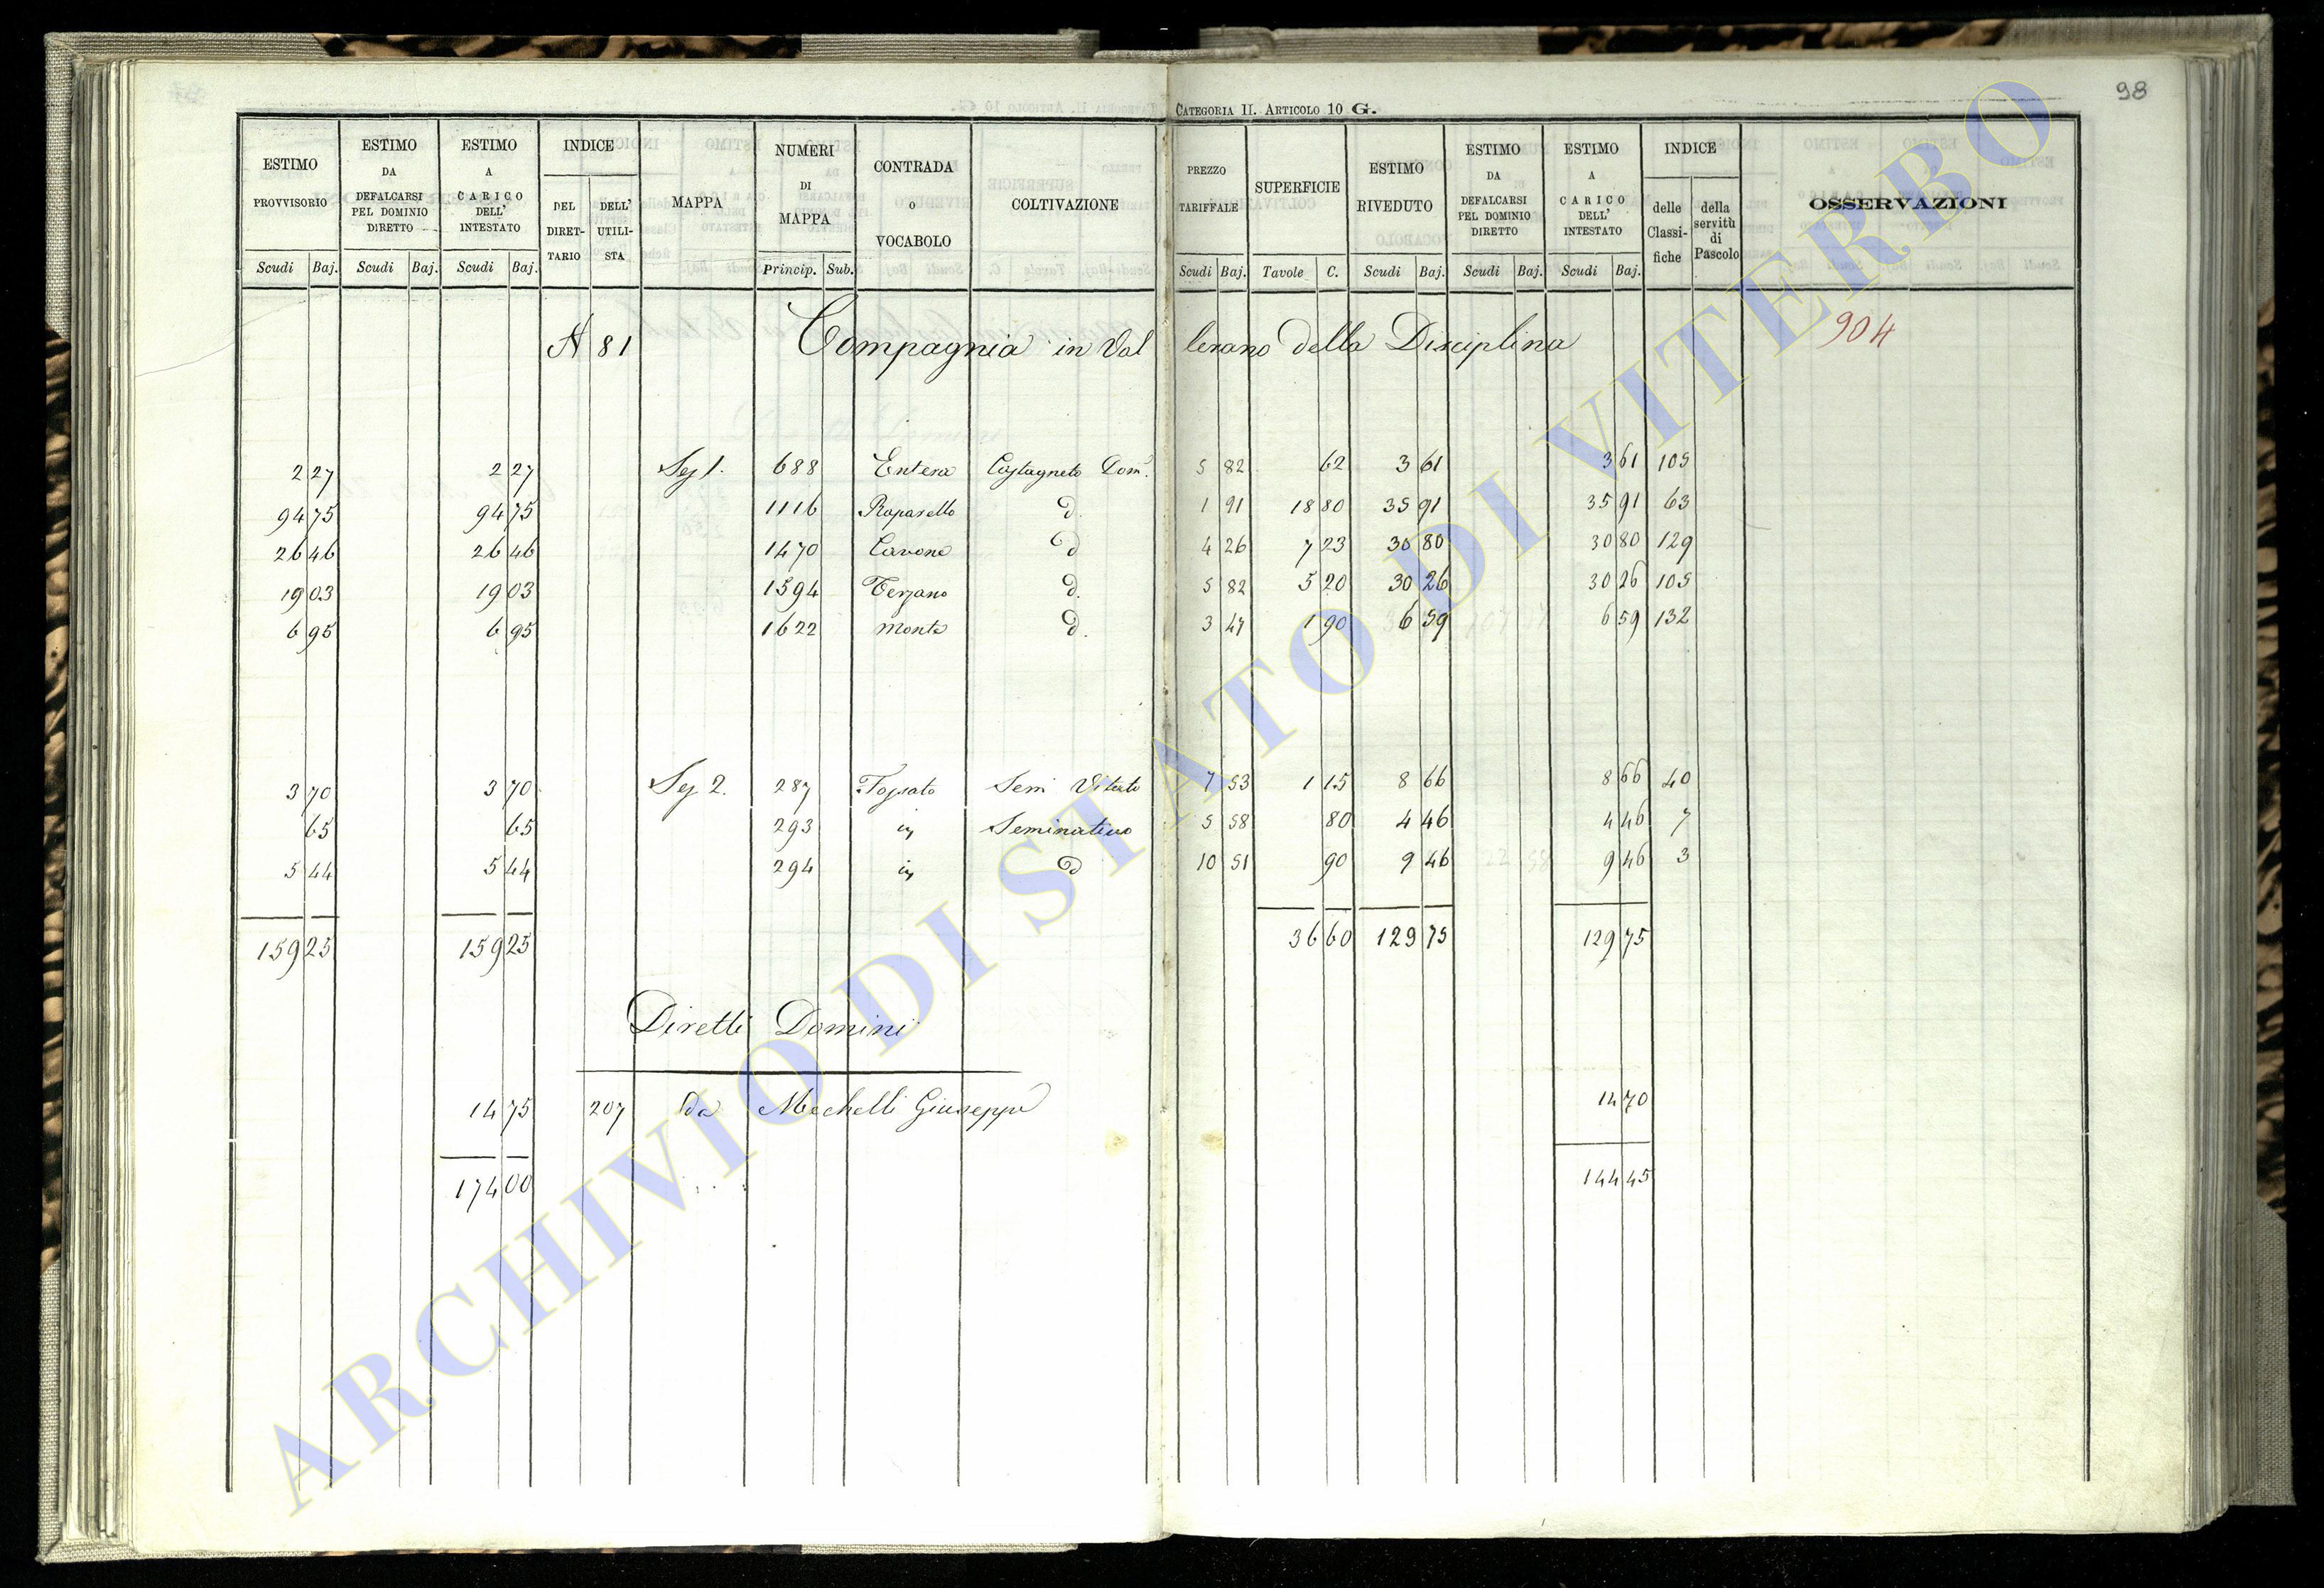 98
CATEGORIA II. ARTICOLO 10 G.
ESTIMO PROVVISORIO Scudi Baj.
ESTIMO DA DEFALCARSI PEL DOMINIO DIRETTO Scudi Baj.
ESTIMO A CARICO DELL' INTESTATO Scudi Baj.
INDICE DEL DIRETTARIO DELL' UTILISTA
MAPPA
NUMERI DI MAPPA Princip. Sub.
CONTRADA o VOCABOLO
COLTIVAZIONE
PREZZO TARIFFALE Scudi Baj.
SUPERFICIE Tavole C.
ESTIMO RIVEDUTO Scudi Baj.
ESTIMO DA DEFALCARSI PEL DOMINIO DIRETTO Scudi Baj.
ESTIMO A CARICO DELL' INTESTATO Scudi Baj.
INDICE delle Classifiche della servitù di Pascolo
OSSERVAZIONI
A 81 Compagnia in Vallerano della Disciplina 904
2 27 2 27 Sez 1. 688 Entera Castagneto Dom. 5 82 62 3 61 3 61 105
94 75 94 75 1116 d. 1 91 18 80 35 91 35 91 63
26 46 26 46 1470 Cavone d 4 26 7 23 30 80 30 80 129
19 03 19 03 1594 Terzano d. 5 82 5 20 30 26 30 26 105
6 95 6 95 1622 Monte d. 3 47 1 90 6 59 6 59 132
3 70 3 70 Sez 2. 287 Fossato Sem Vitato 7 53 1 15 8 66 8 66 40
65 65 293 Seminativo 5 58 80 4 46 4 46 7
5 44 5 44 294 d 10 51 90 9 46 9 46 3
159 25 159 25 36 60 129 75 129 75
Diretti Domini
14 75 207 da Mechelli Giuseppe 14 70
174 00 144 45
ARCHIVIO DI STATO DI VITERBO